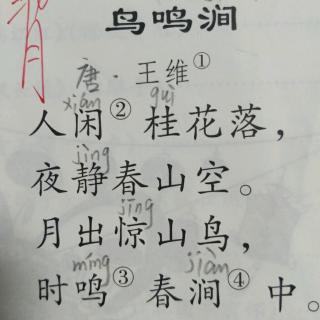 鸟鸣涧
唐·王维①
xián guì
人闲②桂花落，
jìng
夜静春山空。
jīng
月出惊山鸟，
míng jiàn
时鸣③春涧④中。